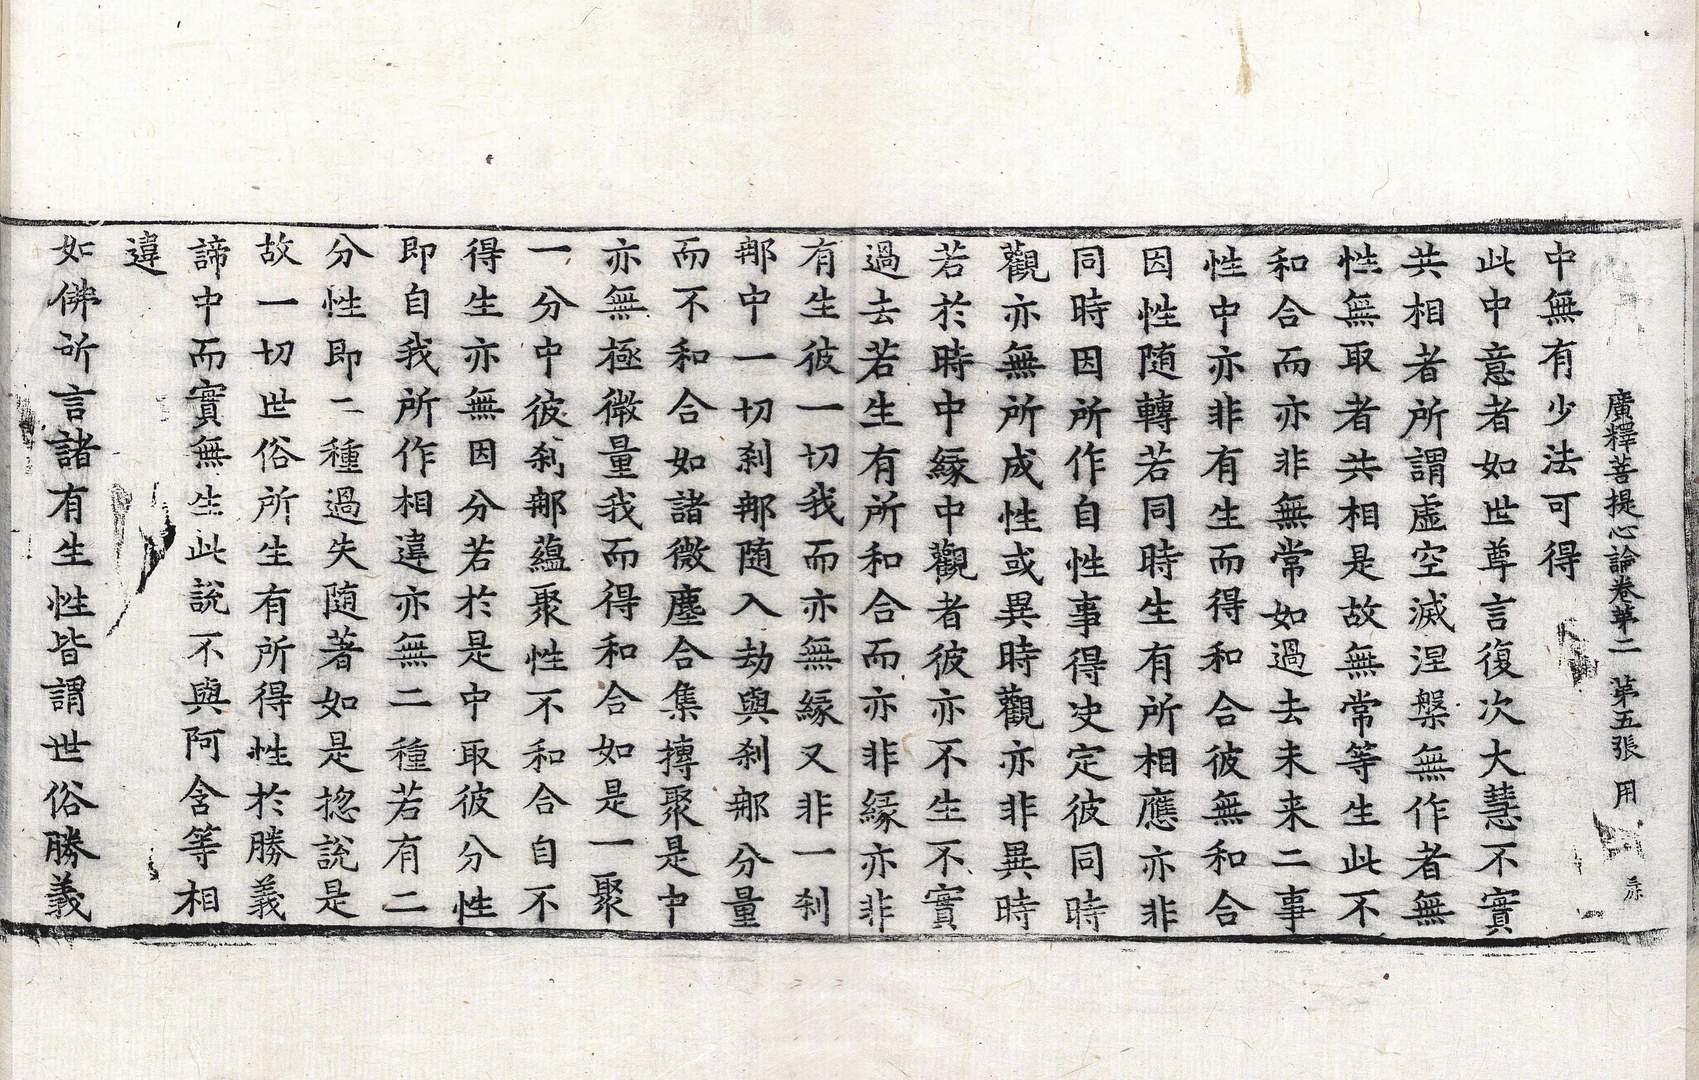 廣釋菩提心論卷第二　第五張　用
中無有少法可得
此中意者如世尊言復次大慧不實
共相者所謂虛空滅涅槃無作者無
性無取者共相是故無常等生此不
和合而亦非無常如過去未来二事
性中亦非有生而得和合彼無和合
因性随轉若同時生有所相應亦非
同時因所作自性事得决定彼同時
觀亦無所成性或異時觀亦非異時
若於時中緣中觀者彼亦不生不實
過去若生有所和合而亦非緣亦非
有生彼一切我而亦無緣又非一刹
那中一切刹那随入劫與刹那分量
而不和合如諸微塵合集摶聚是中
亦無極微量我而得和合如是一聚
一分中彼刹那蘊聚性不和合自不
得生亦無因分若於是中取彼分性
即自我所作相違亦無二種若有二
分性即二種過失随著如是揔說是
故一切世俗所生有所得性於勝義
諦中而實無生此說不與阿含等相
違
如佛所言諸有生性皆謂世俗勝義